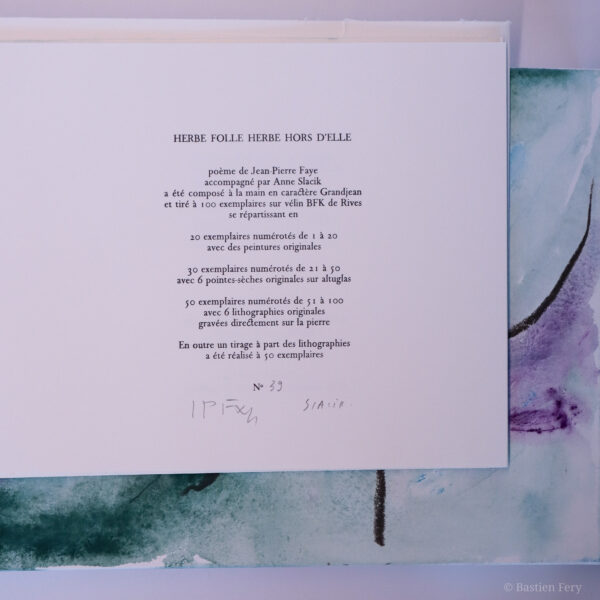 HERBE FOLLE HERBE HORS D'ELLE
poème de Jean-Pierre Faye
accompagné par Anne Slacik
a été composé à la main en caractère Grandjean
et tiré à 100 exemplaires sur vélin BFK de Rives
se répartissant en
20 exemplaires numérotés de 1 à 20
avec des peintures originales
30 exemplaires numérotés de 21 à 50
avec 6 pointes-sèches originales sur altuglas
50 exemplaires numérotés de 51 à 100
avec 6 lithographies originales
gravées directement sur la pierre
En outre un tirage à part des lithographies
a été réalisé à 50 exemplaires
N° 39
SLACIK.
© Bastien Fery